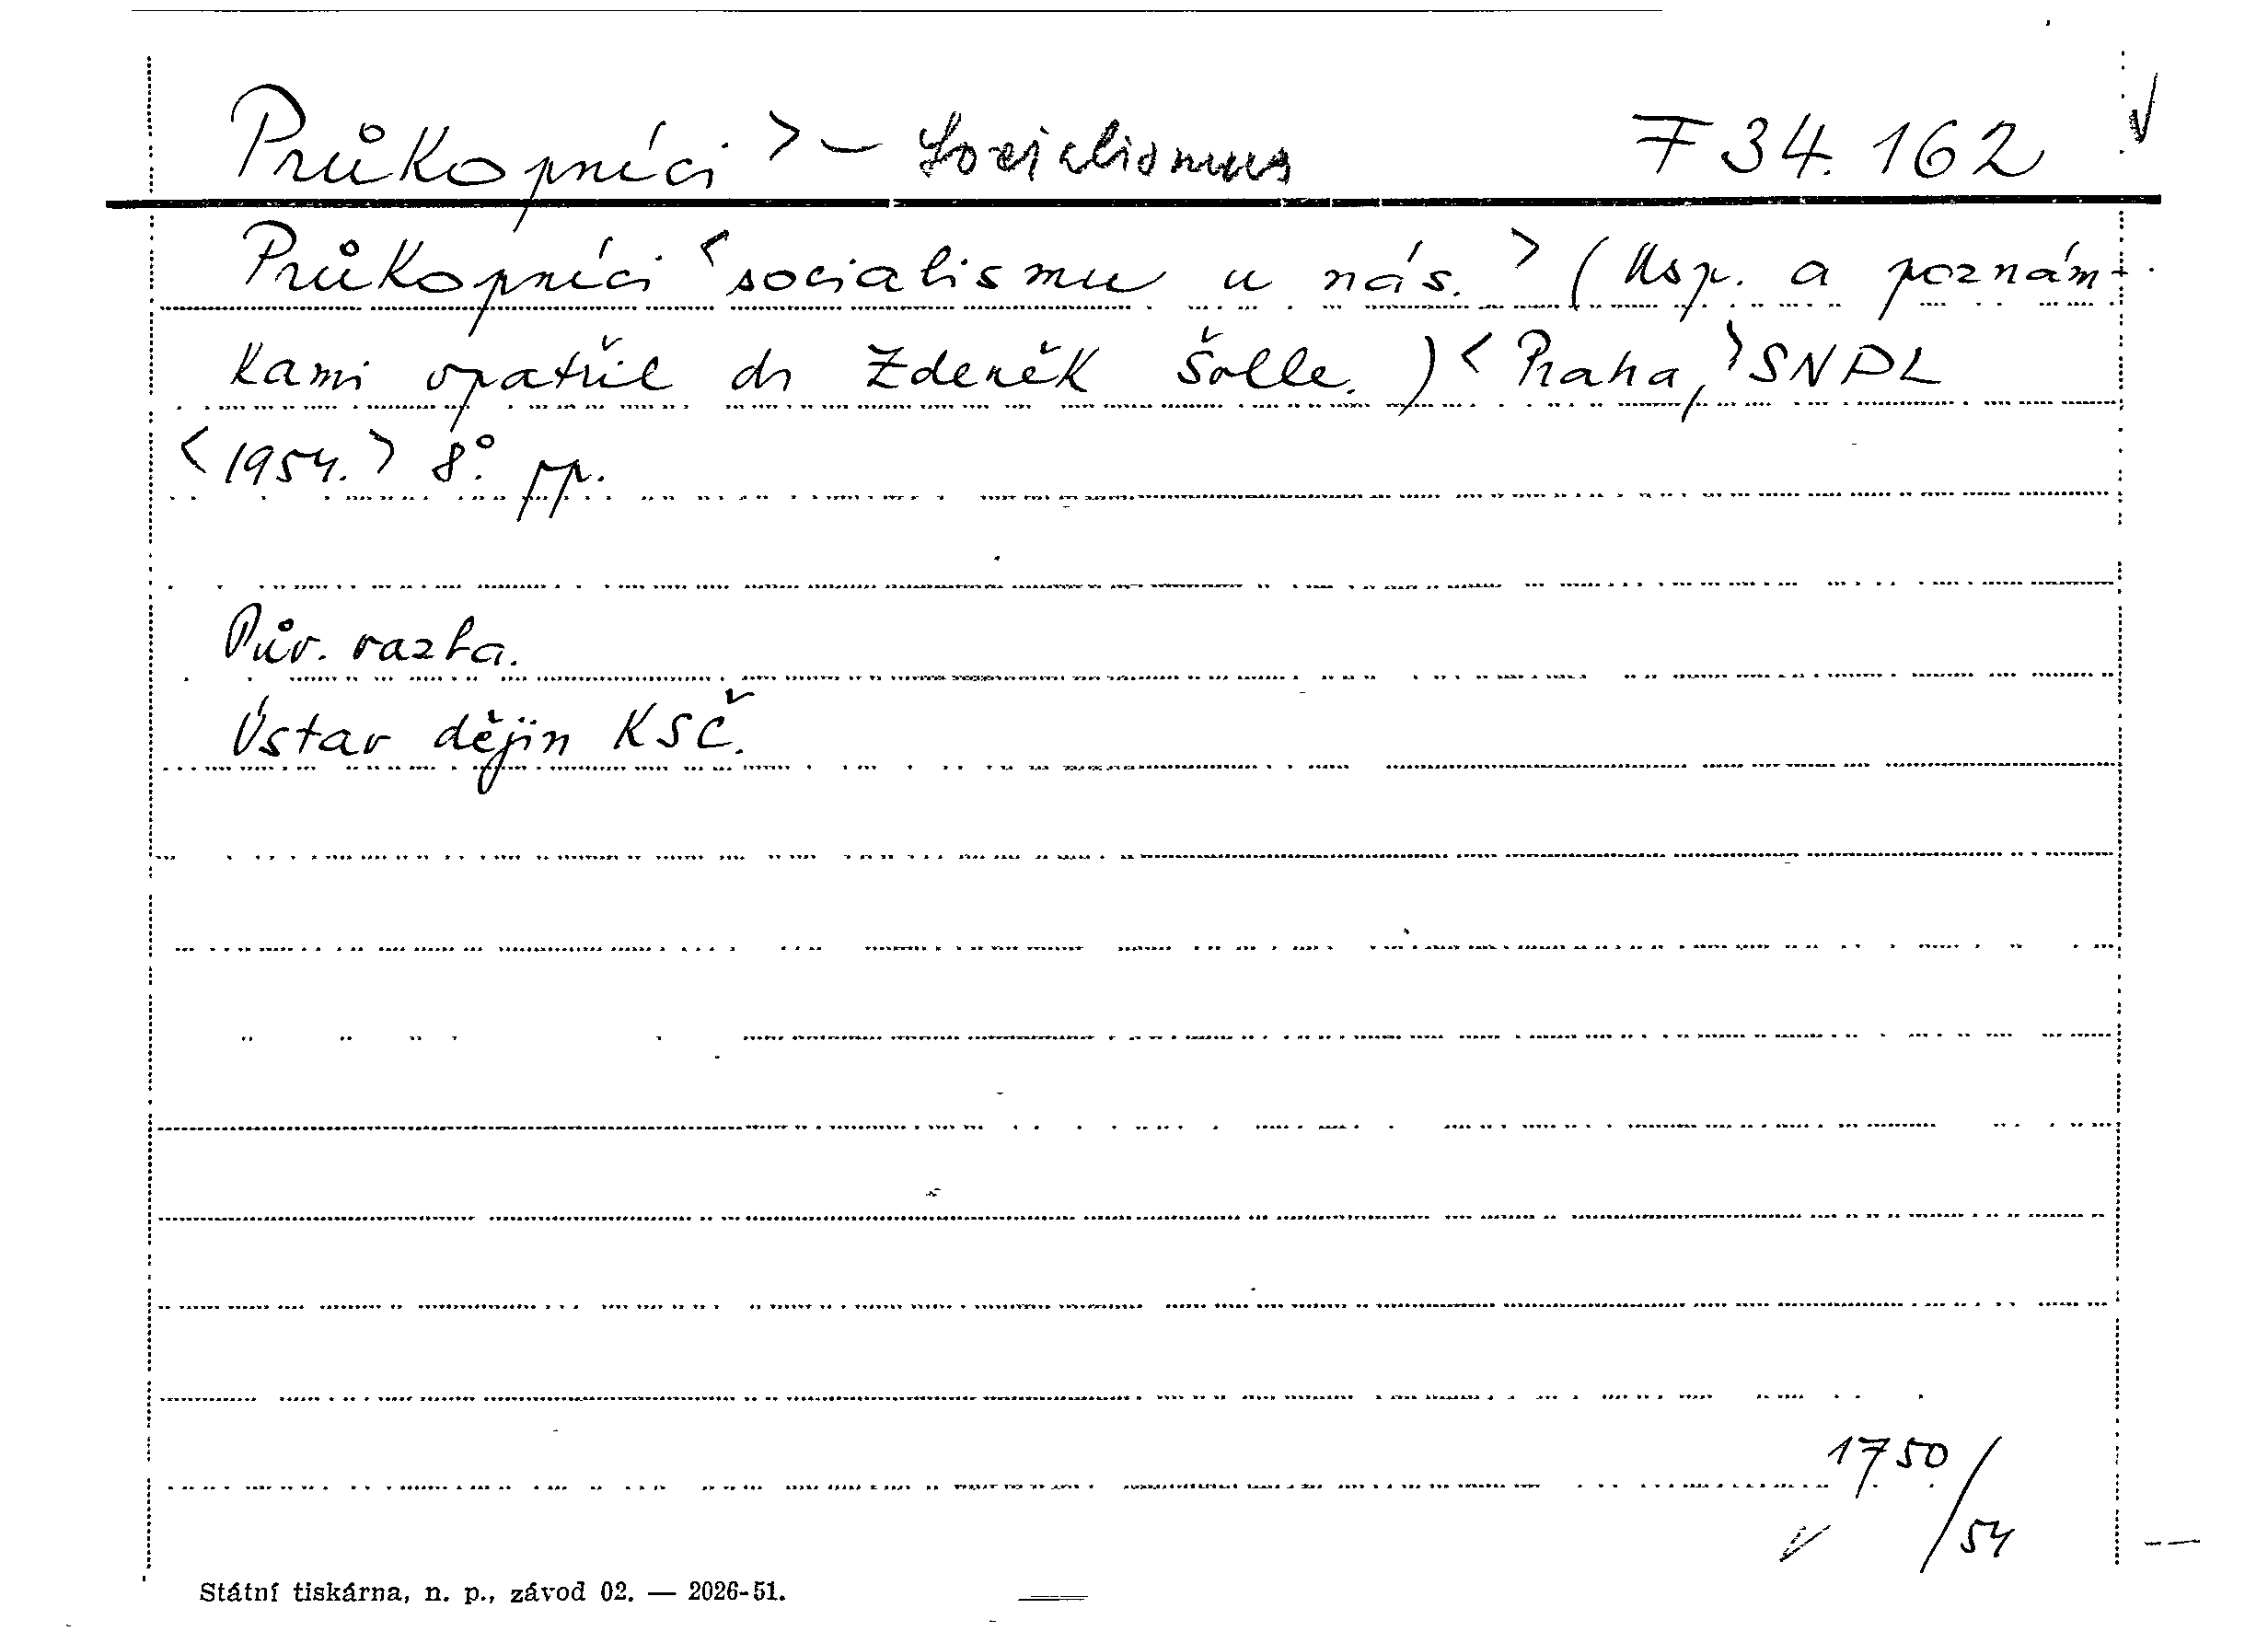 Průkopníci > — Socialismus F 34.162
Průkopníci < socialismu u nás. > (Usp. a poznám-
kami opatřil dr Zdeněk Šolle.) < Praha, > SNPL
< 1954. > 8°. pp.
Pův. vazba.
Ústav dějin KSČ.
1750/54
Státní tiskárna, n. p., závod 02. — 2026-51.